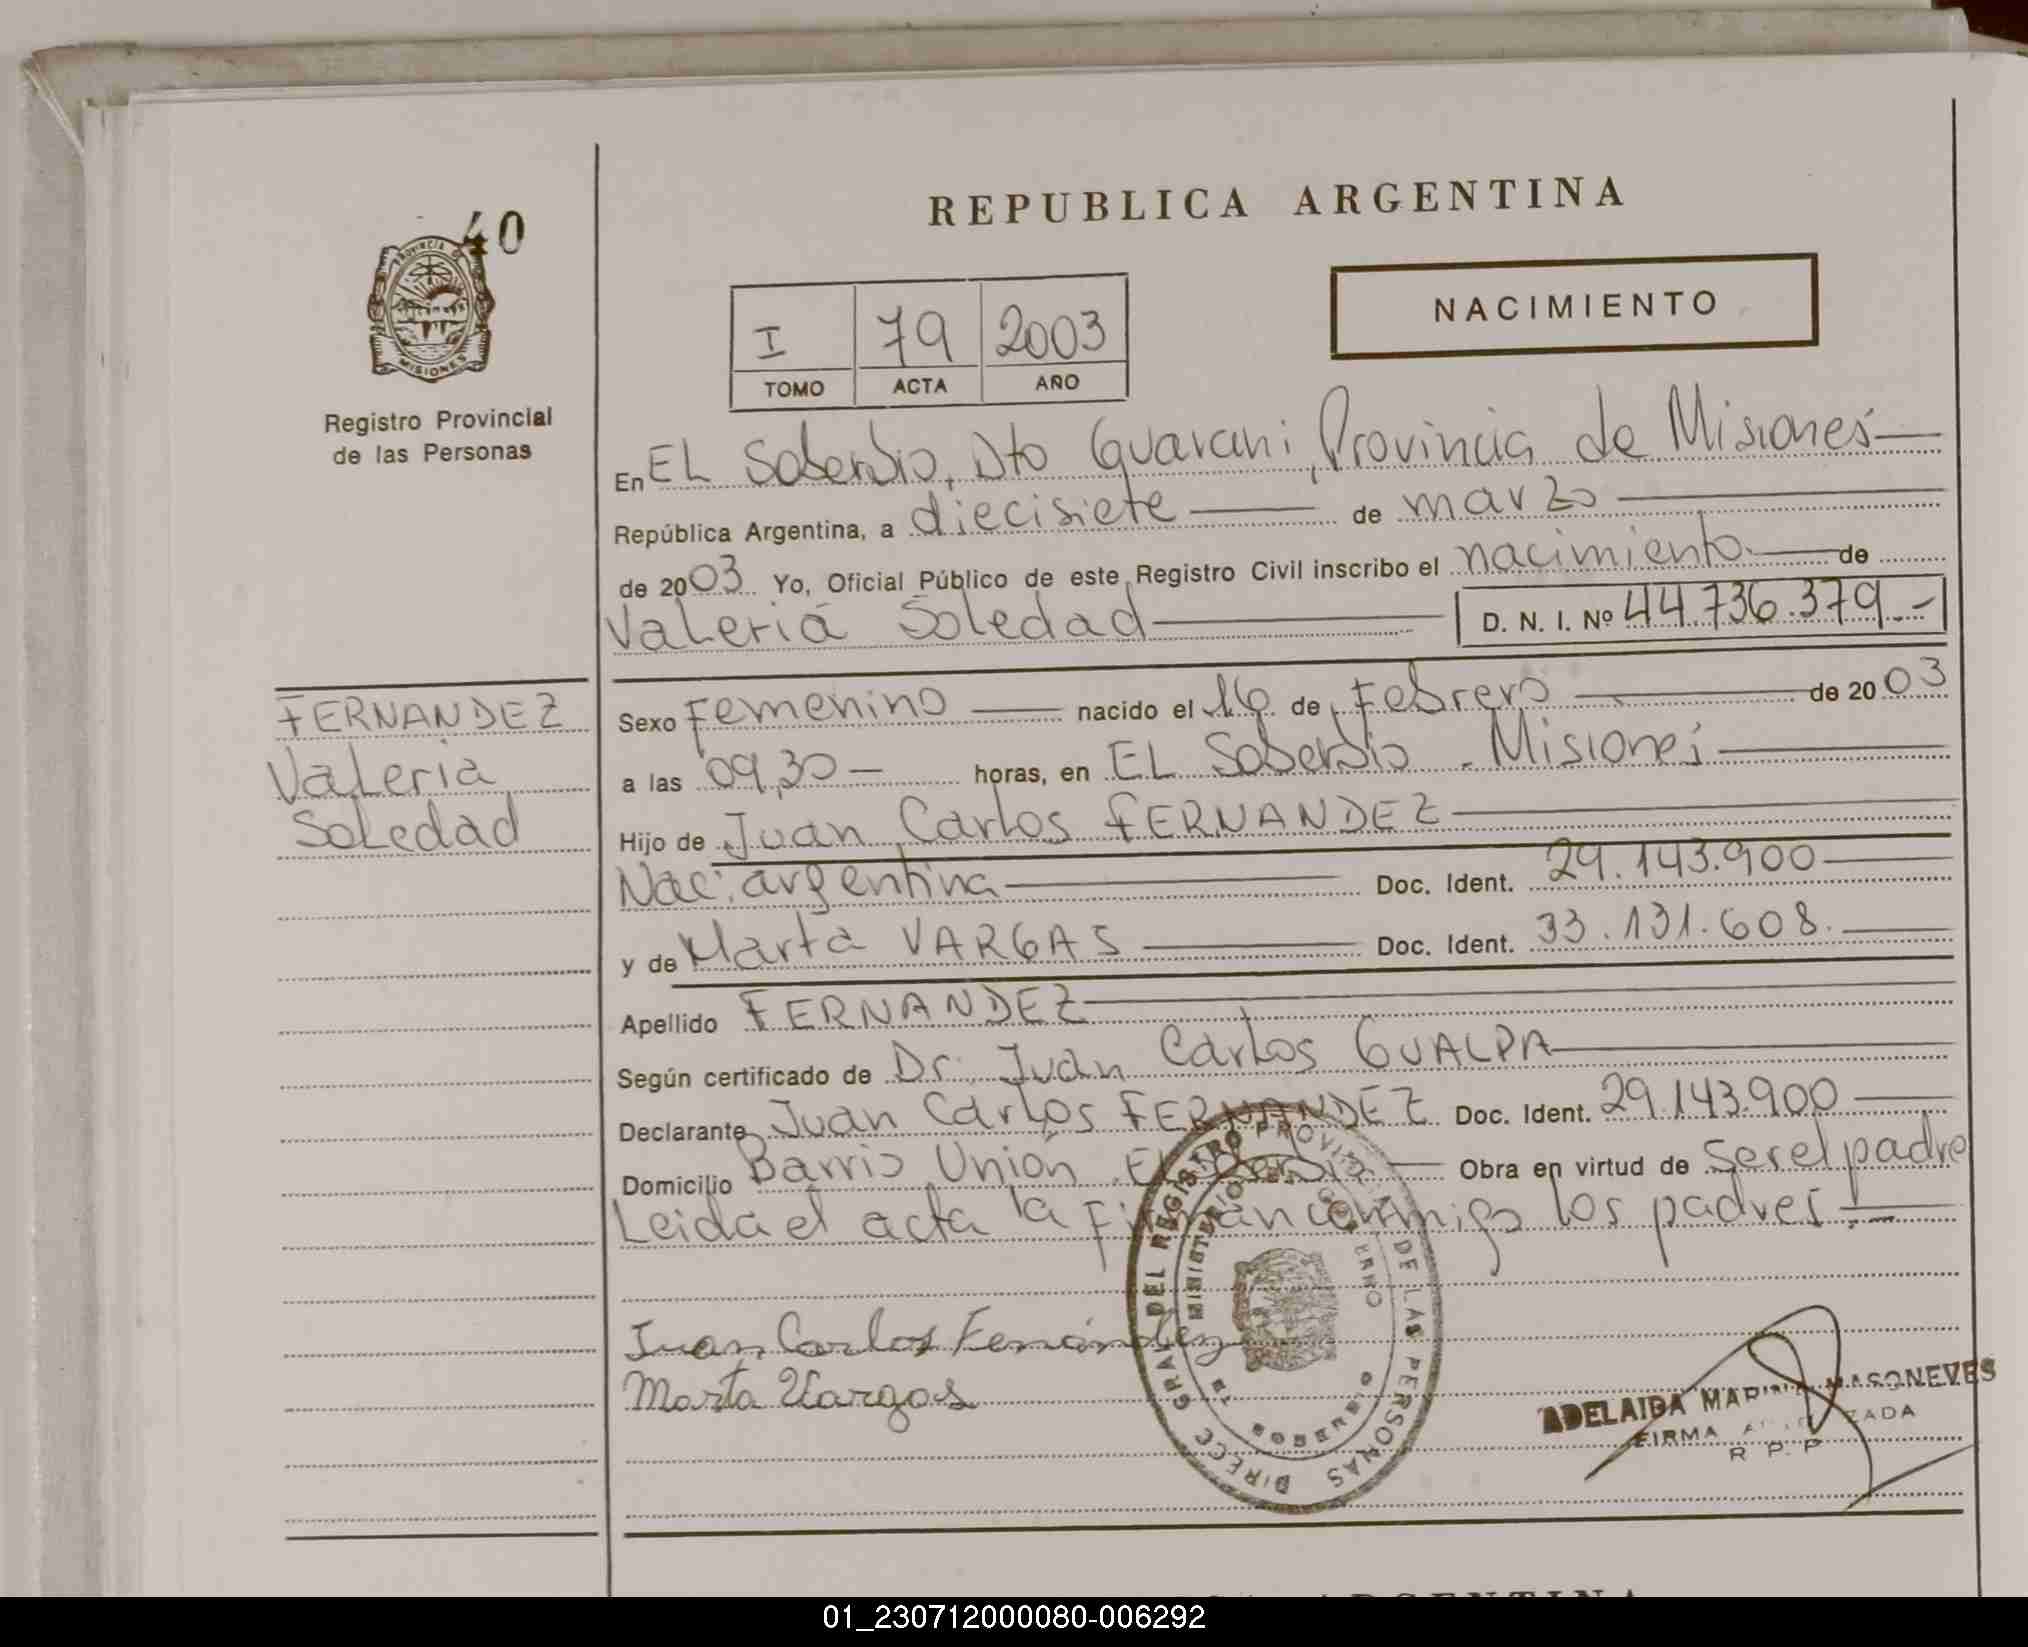 40
PROVINCIA DE
MISIONES
Registro Provincial
de las Personas
REPUBLICA ARGENTINA
NACIMIENTO
I 79 2003
TOMO ACTA AÑO
En EL Soberbio, Dto Guarani, Provincia de Misiones
República Argentina, a diecisiete de marzo
de 2003 Yo, Oficial Público de este Registro Civil inscribo el nacimiento de
Valeria Soledad D. N. I. Nº 44.736.379.-
FERNANDEZ
Valeria
Soledad
Sexo Femenino nacido el 16 de Febrero de 2003
a las 09,30 horas, en EL Soberbio - Misiones
Hijo de Juan Carlos FERNANDEZ
Nac: argentina Doc. Ident. 29.143.900
y de Marta VARGAS Doc. Ident. 33.131.608.
Apellido FERNANDEZ
Según certificado de Dr. Juan Carlos GUALPA
Declarante Juan Carlos FERNANDEZ Doc. Ident. 29.143.900
Domicilio Barrio Unión. El Soberbio Obra en virtud de ser el padre
Leida el acta la Firman conmigo los padres.-
Juan Carlos Fernández
Marta Vargas
DIRECC GRAL DEL REGISTRO PROVINCIAL DE LAS PERSONAS
MINISTERIO DE GOBIERNO
ADELAIDA MASONEVES
FIRMA AUTORIZADA
R. P. P
ARGENTINA
01_230712000080-006292